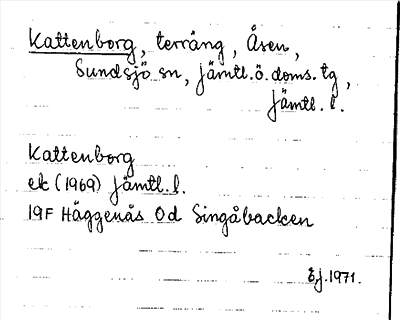 Kattenborg, terräng, Åsen,
Sundsjö sn, Jämtl.ö.doms.tg,
Jämtl.l.
Kattenborg
ek (1969) Jämtl.l.
19F Häggenås 0d Singåbacken
E.j.1971.